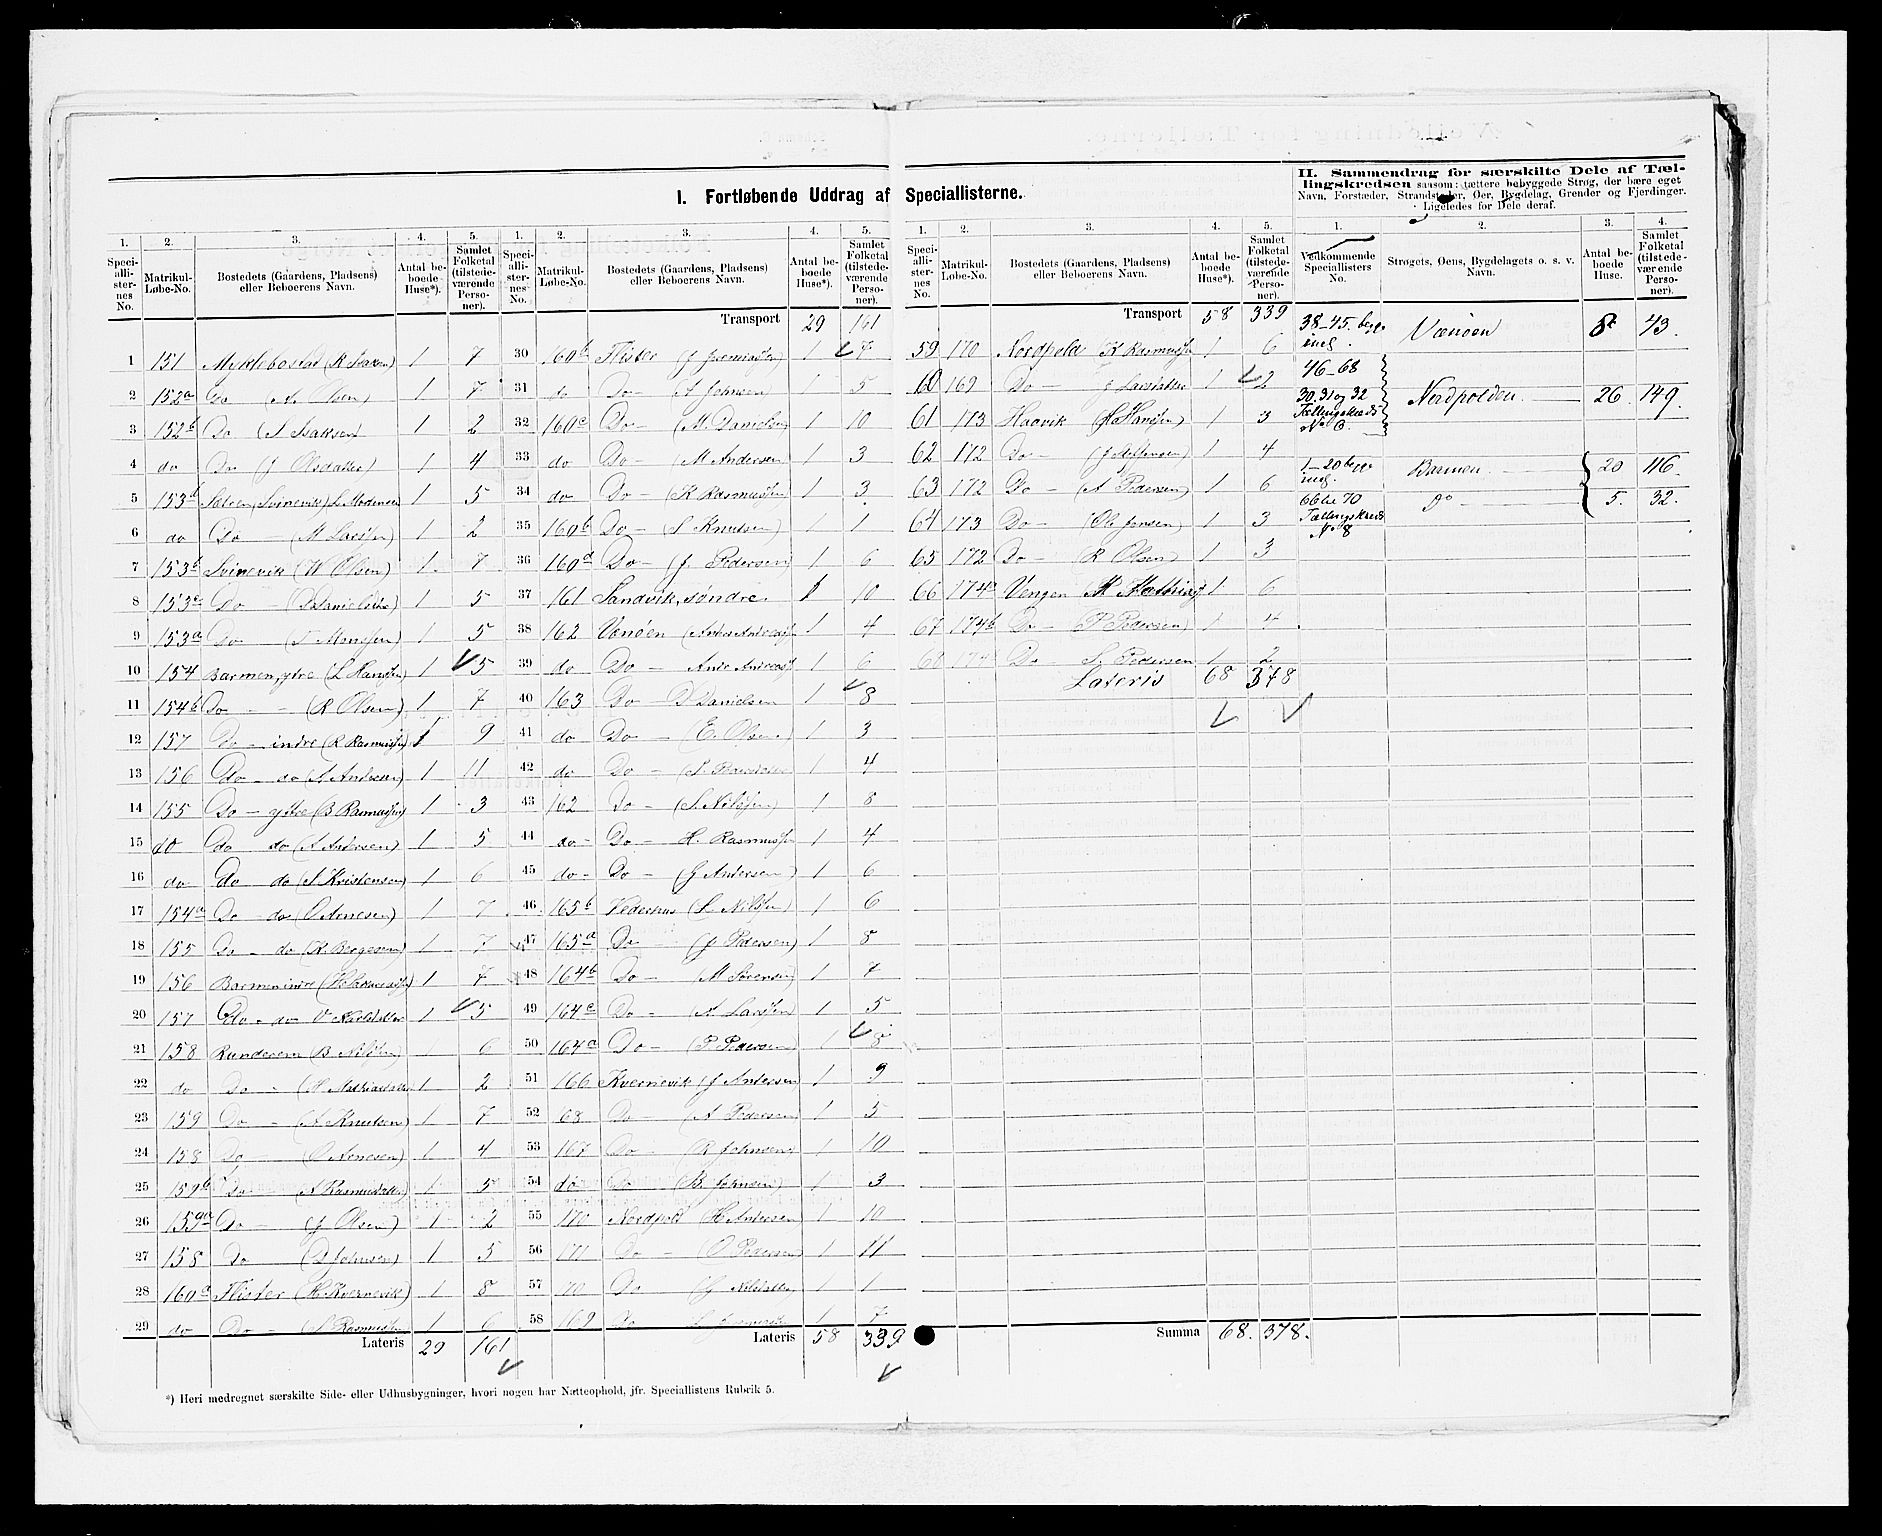 I. Fortløbende Uddrag af Speciallisterne.
II. Sammendrag for særskilte Dele af Tæl-
lingskredsen saasom: tættere bebyggede Strøg, der bære eget
Navn, Forstæder, Strandsteder, Øer, Bygdelag, Grender og Fjerdinger.
Ligeledes for Dele deraf.
1. 2. 3. 4. 5.
Speci-alli-ster-nes No. Matrikul-Løbe-No. Bostedets (Gaardens, Pladsens) eller Beboerens Navn. Antal be-boede Huse*). Samlet Folketal (tilstede-værende Perso-ner).
1 151 Myklebostad (R Isaksen) 1 7
2 152a Do (A. Olsen) 1 7
3 152b Do (I Isaksen 1 2
4 do Do (J Olsdatter) 1 4
5 153b Sætren (Svinevik) L. Mortensen 1 5
6 do Do — (M Larsen) 1 2
7 153b Svinevik (W Olsen) 1 7
8 153c Do — 1 5
9 153a Do — 1 5
10 154 Barmen, ytre (L Hansen) 1 5
11 154b Do — (R Olsen) 1 7
12 157 Do — indre (R Rasmussen) 1 9
13 156 Do — do 1 11
14 155 Do — ytre (B Rasmussen) 1 3
15 do Do do (A Andersen) 1 5
16 do Do do (S Kristensen) 1 6
17 154a Do do (O Arnesen) 1 7
18 155 Do — do (K. Bergesen) 1 7
19 156 Barmen indre 1 7
20 157 Do — do 1 5
21 158 Runderem (B Nilsen) 6
22 do Do — 1 2
23 159 Do — (A Knudsen) 1 7
24 158 Do (O Arnesen) 1 4
25 159b Do (A Rasmusdatter) 1 5
26 159a Do — (J Olsen) 1 2
27 158 Do (D Johnsen) 1 5
28 160a Flister (H. Kvernevik) 1 8
29 do Do — (S Rasmussen 1 6
Lateris 29 161
1. 2. 3. 4. 5.
Speci-alli-ster-nes No. Matrikul-Løbe-No. Bostedets (Gaardens, Pladsens) eller Beboerens Navn. Antal be-boede Huse*). Samlet Folketal (tilstede-værende Perso-ner).
Transport 29 161
30 160b Flister 1 7
31 do Do — (A Johnsen) 1 5
32 160c Do — (M. Danielsen) 1 10
33 do Do — (M Andersen) 1 3
34 do Do — (K Rasmussen) 1 3
35 160b Do — (S Knudsen) 1 1
36 160d Do — (J. Pedersen) 1 6
37 161 Sandvik, søndre. 1 10
38 162 Vænøen 1 4
39 do Do — 1 6
40 163 Do D Danielsen 1 8
41 do Do — (E. Olsen) 1 3
42 do Do — 1 4
43 162 Do — (S Nilsen) 1 8
44 do Do — H. Rasmussen 1 4
45 do Do — (J Andersen) 1 6
46 165b Vederhus (L Nilsen) 1 6
47 165a Do (J Pedersen) 1 8
48 164b Do — M Sørensen 1 7
49 164c Do — (A Larsen) 1 5
50 164a Do — (P. Pedersen) 1 8
51 166 Kvernevik (J Andersen 1 9
52 68 Do — (A Pedersen) 1 5
53 167 Do — (R Johnsen) 1 10
54 do Do (B. Johnsen) 1 3
55 170 Nordpold (H Andersen) 1 10
56 171 Do — (O Pedersen) 1 11
57 70 Do (J Nilsdatter) 1 1
58 169 Do 1 7
Lateris 58 339
1. 2. 3. 4. 5.
Speci-alli-ster-nes No. Matrikul-Løbe-No. Bostedets (Gaardens, Pladsens) eller Beboerens Navn. Antal be-boede Huse*). Samlet Folketal (tilstede-værende Perso-ner).
Transport 58 339
59 170 Nordpold (K Rasmussen 1 6
60 169 Do — J Larsdatter 1 2
61 173 Haavik (H. Hansen) 1 3
62 172 Do — (J Steffensen) 1 4
63 172 Do — (A Pedersen) 1 6
64 173 Do — (Ole Jensen) 1 3
65 172 Do — (R Olsen) 1 3
66 174a Vengen 1 6
67 174b Do — P Pedersen) 1 4
68 174 Do S. Pedersen 1 2
Lateris 68 378
Summa 68. 378.
1. 2. 3. 4.
Vedkommende Speciallisters No. Strøgets, Øens, Bygdelagets o. s. v. Navn. Antal be-boede Huse. Samlet Folketal (tilstede-værende Perso-ner).
38–45. begge incl. Vænøen 8 43.
46–68 30, 31 og 32 Tællingskreds No 6. Nordpolden 26. 149.
1–20 begge incl. Barmen. 20 116.
66 til 70 Tællingskreds No 8 Do 5. 32.
*) Heri medregnet særskilte Side- eller Udhusbygninger, hvori nogen har Natteophold, jfr. Speciallistens Rubrik 5.